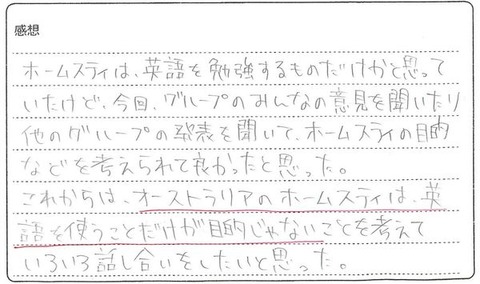 感想
ホームスティは、英語を勉強するものだけかと思って
いたけど、今回、グループのみんなの意見を聞いたり
他のグループの発表を聞いて、ホームスティの目的
などを考えられて良かったと思った。
これからは、オーストラリアのホームスティは、英
語を使うことだけが目的じゃないことを考えて
いろいろ話し合いをしたいと思った。